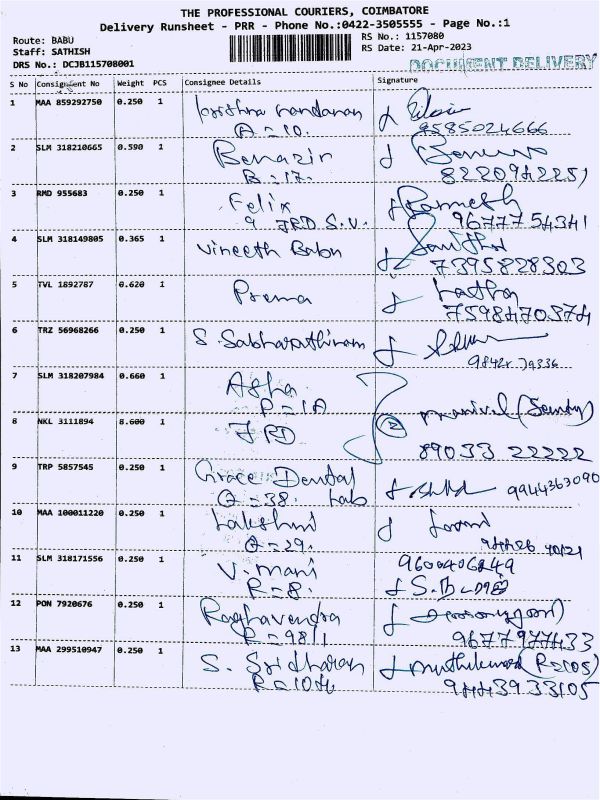 THE PROFESSIONAL COURIERS, COIMBATORE
Delivery Runsheet - PRR - Phone No.:0422-3505555 - Page No.:1
Route: BABU
RS No.: 1157080
Staff: SATHISH
RS Date: 21-Apr-2023
DRS No.: DCJB115708001
DOCUMENT DELIVERY
S No Consignment No Weight PCS Consignee Details Signature
1 MAA 859292750 0.250 1 nandanan
A = 10. 9585024666
2 SLM 318210665 0.590 1 Benazir
B = 17. 8220942251
3 RMD 955683 0.250 1 Felix Ramesh
9 JRD S.V. 9677754341
4 SLM 318149805 0.365 1 Vineeth Babu
7395828303
5 TVL 1892787 0.620 1 Prema Latha
7598470374
6 TRZ 56968266 0.250 1 S. Sabharathinam
7 SLM 318207984 0.660 1 Asha
P = 1A
8 NKL 3111894 8.600 1 JRD 2
89033 22222
9 TRP 5857545 0.250 1 Grace Dental 9944363090
A = 38. Lab
10 MAA 100011220 0.250 1 Lakshmi
A = 29.
11 SLM 318171556 0.250 1 V. Mani 9600406249
R = 8.
12 PON 7920676 0.250 1 Raghavendra
R = 98/1 9677977433
13 MAA 299510947 0.250 1 S. Sridharan (R=105)
R = 104 9443933105